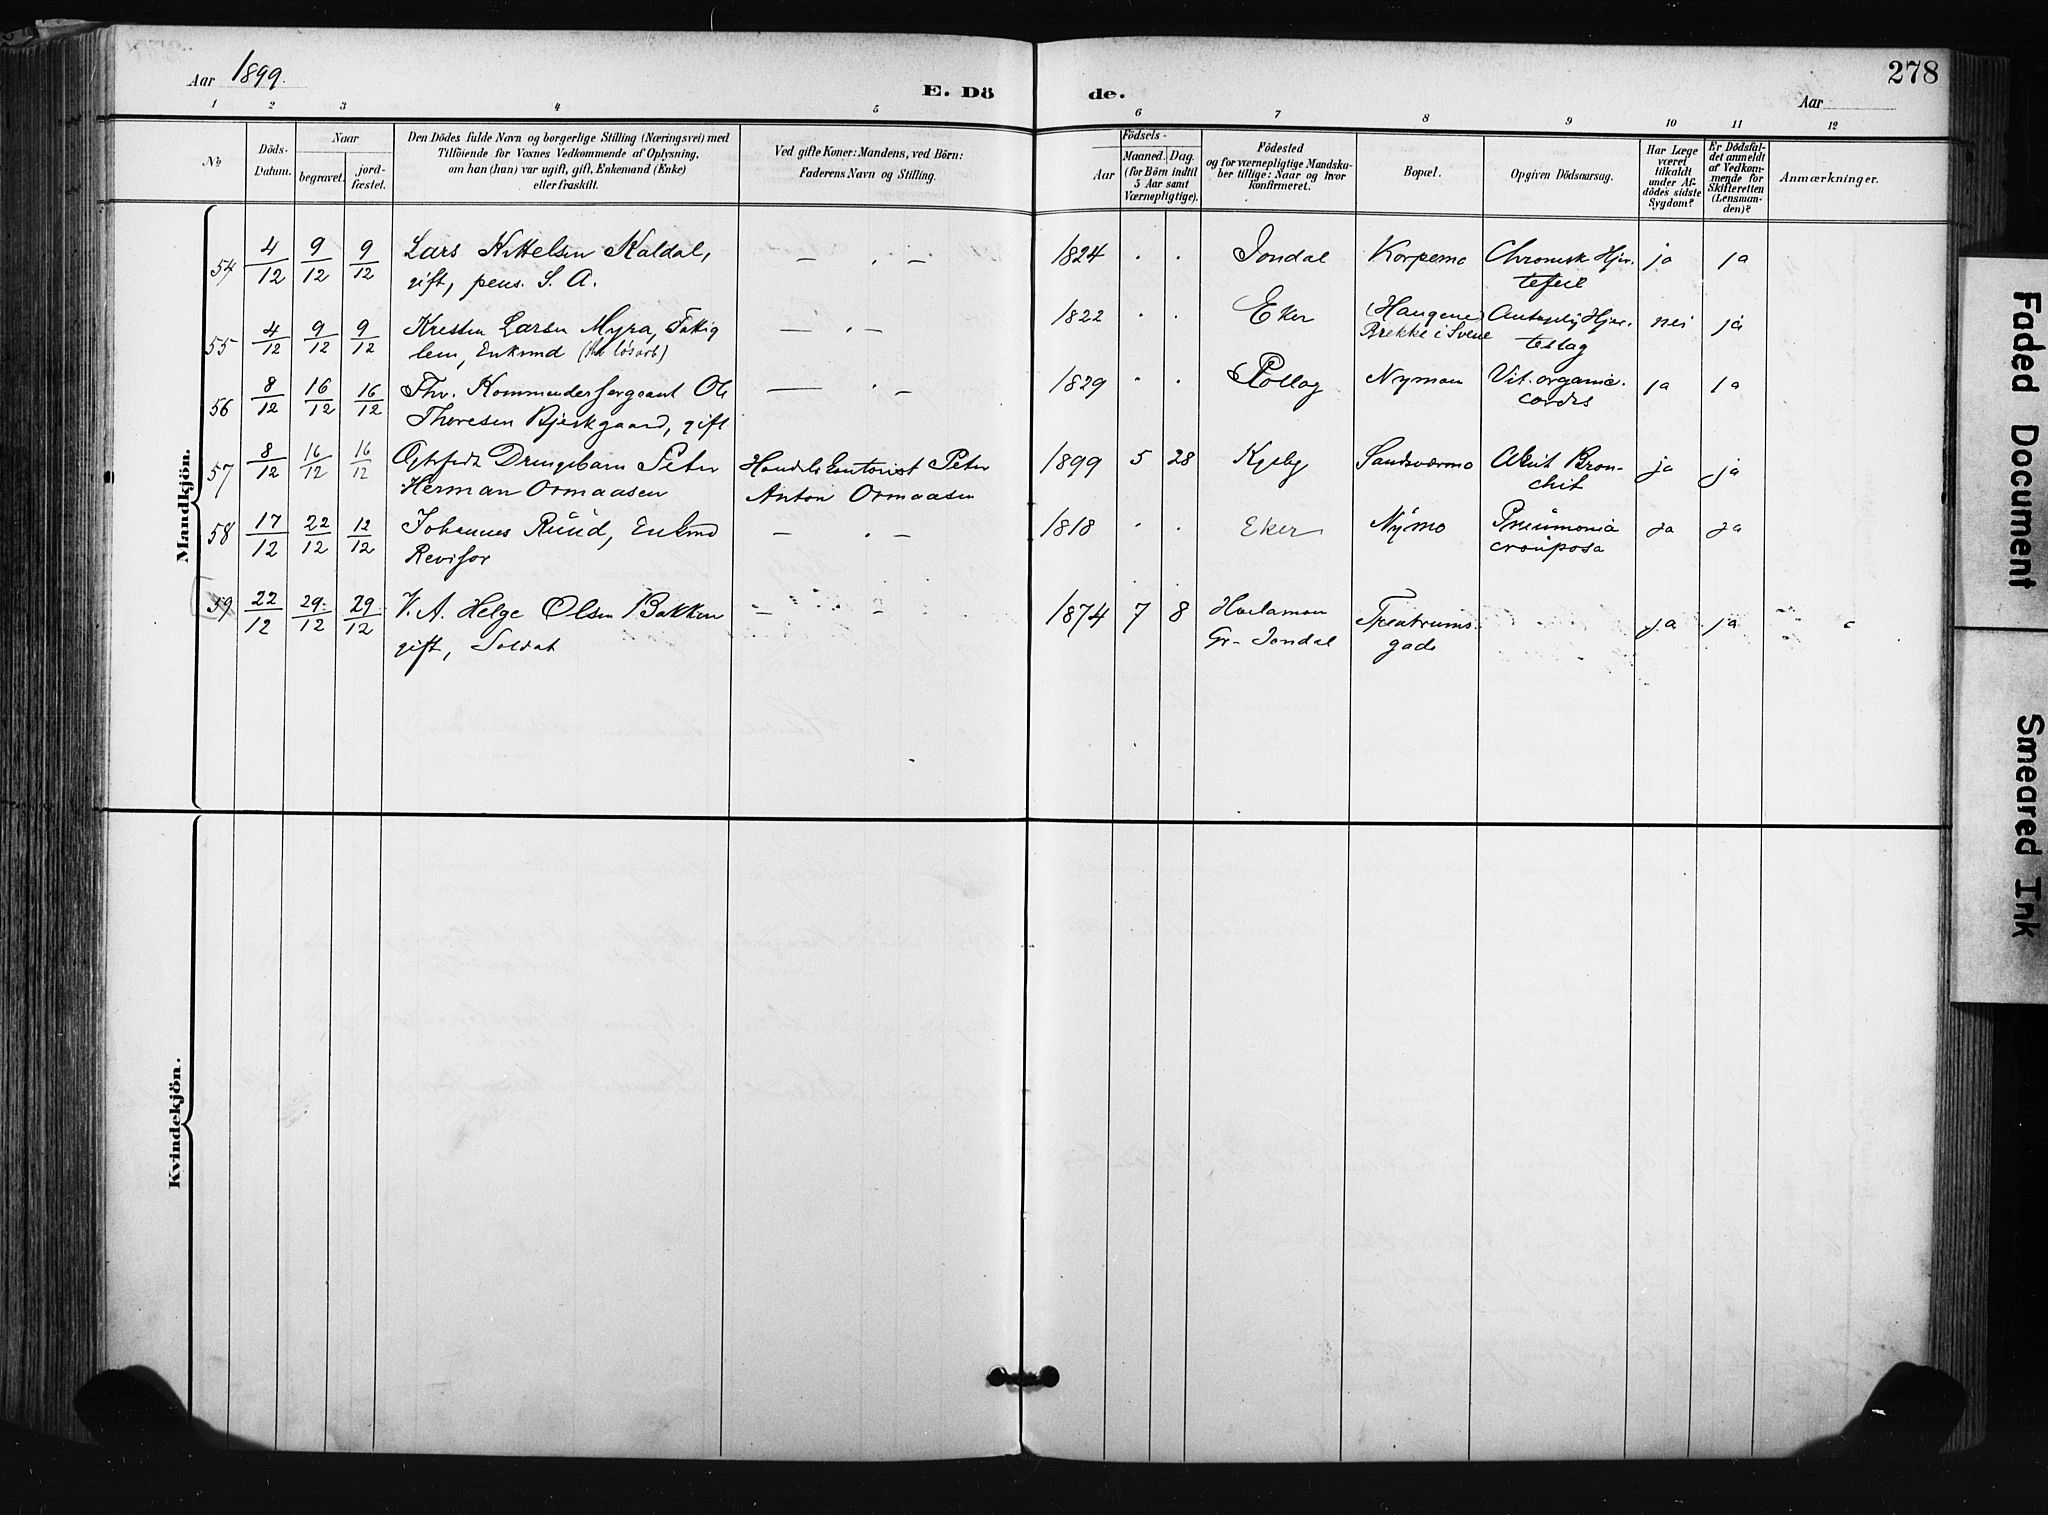 Aar 1899.
E. Dö de.
Aar
278
1 2 3 4 5 6 7 8 9 10 11 12
No
Döds-
Datum.
Naar
begravet.
jord-
fæstet.
Den Dödes fulde Navn og borgerlige Stilling (Næringsvei) med
Tilföiende for Voxnes Vedkommende af Oplysning,
om han (hun) var ugift, gift, Enkemand (Enke)
eller fraskilt.
Ved gifte Koner: Mandens, ved Börn:
Faderens Navn og Stilling.
Födsels-
Aar
Maaned.
Dag.
(for Börn indtil
5 Aar samt
Værnepligtige).
Födested
og for værnepligtige Mandska-
ber tillige: Naar og hvor
konfirmeret.
Bopæl.
Opgiven Dödsaarsag.
Har Læge
været
tilkaldt
under Af-
dödes sidste
Sygdom?
Er Dödsfal-
det anmeldt
af Vedkom-
mende for
Skifteretten
(Lensman-
den)?
Anmærkninger.
Mandkjön.
54 4/12 9/12 9/12 Lars Kittelsen Kaldal, — . - 1824 . . Jondal Korpemo Chronisk Hjer- ja ja
gift, pens. S. A. tefeil
55 4/12 9/12 9/12 Kresten Larsen Myra, Fattig — . — 1822 . . Eker (Haugene) Hjer- nei ja
lem, Enkmd Brekke i Svene teslag
56 8/12 16/12 16/12 Thv. Kommandersergeant Ole — . - 1829 . . Rollag Nymoen Vit. organic. ja ja
Thoresen Bjerkgaard, gift cordis
57 8/12 16/12 16/12 Peter Peter 1899 5 28 Kgsby Sandsværmo Akut Bron- ja ja
Herman Ormaasen Anton Ormaasen chit
58 17/12 22/12 12/12 Johannes Ruud, Enkmd — . - 1818 . . Eker Nymo Pneumonia ja ja
Revisor crouposa
59 22/12 29/12 29/12 V. A. Helge Olsen Bakken — - 1874 7 8 ja ja
gift, Soldat Gr- Jondal gade
Kvindekjön.
Faded Document
Smeared Ink